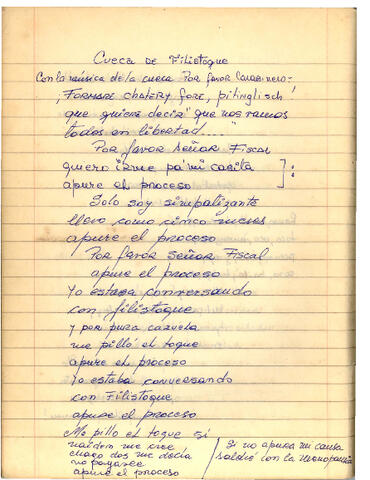 Cueca de Filistoque
Con la música de la cueca Por favor Carabinero:
¡Formare chatery fort, pitinglisch!
que quiere decir "que nos vamos
todos en libertad....."
Por favor Señor Fiscal
quiero irme pa'mi casita
apure el proceso
Solo soy simpatizante
llevo como cinco meses
apure el proceso
Por favor Señor Fiscal
apure el proceso
Yo estaba conversando
con filistoque
y por pura cazuela
me pilló el toque
apure el proceso
Yo estaba conversando
con Filistoque
apure el proceso
Me pillo el toque si
naiden me cree
chago dos me decía
no payasee
apure el proceso
Si no apura mi causa
saldré con la